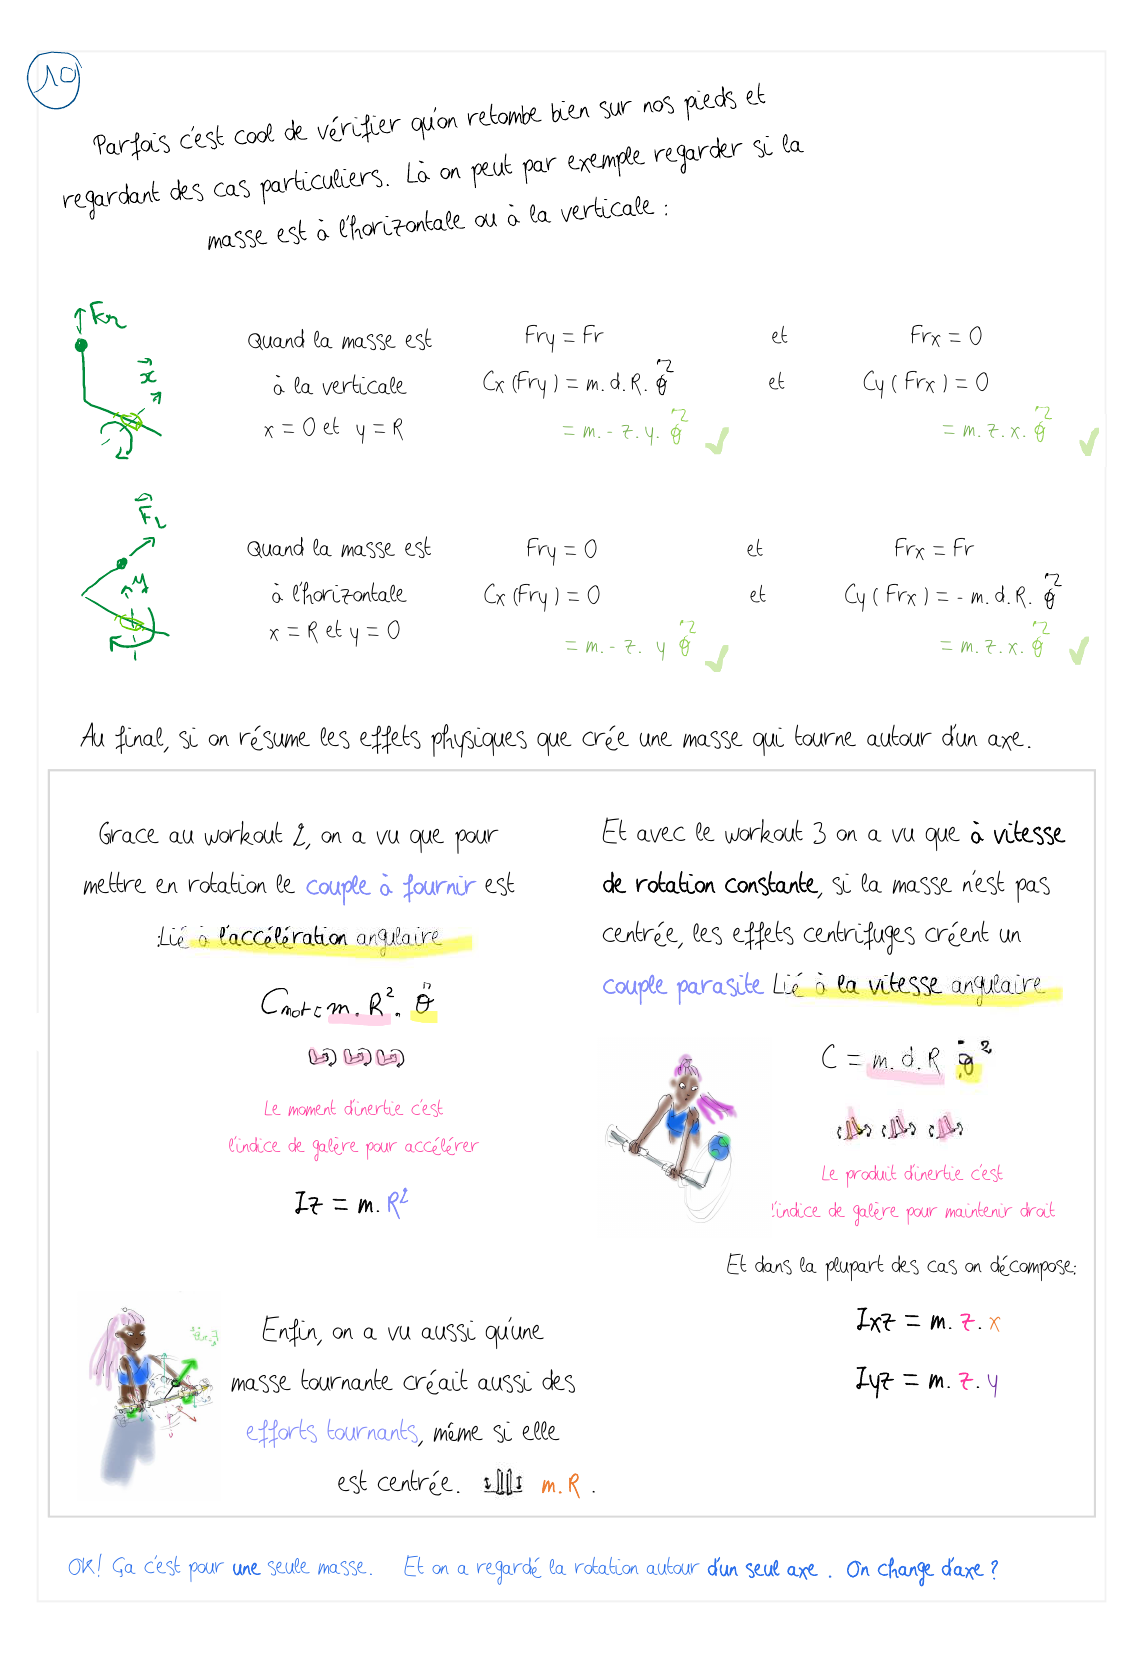 10
Parfois c'est cool de vérifier qu'on retombe bien sur nos pieds et
regardant des cas particuliers. Là on peut par exemple regarder si la
masse est à l'horizontale ou à la verticale :
Fr
x
Quand la masse est Fry = Fr et Frx = 0
à la verticale Cx (Fry) = m. d. R. θ̇² et Cy ( Frx ) = 0
x = 0 et y = R = m. - z. y. θ̇² = m. z. x. θ̇²
Fr
y
Quand la masse est Fry = 0 et Frx = Fr
à l'horizontale Cx (Fry) = 0 et Cy ( Frx ) = - m. d. R. θ̇²
x = R et y = 0 = m. - z. y θ̇² = m. z. x. θ̇²
Au final, si on résume les effets physiques que crée une masse qui tourne autour d'un axe.
Grace au workout 2, on a vu que pour
mettre en rotation le couple à fournir est
:Lié à l'accélération angulaire
Cmot = m. R². θ̈
Le moment d'inertie c'est
l'indice de galère pour accélérer
Iz = m. R²
Et avec le workout 3 on a vu que à vitesse
de rotation constante, si la masse n'est pas
centrée, les effets centrifuges créent un
couple parasite Lié à la vitesse angulaire
C = m. d. R θ̇²
Le produit d'inertie c'est
l'indice de galère pour maintenir droit
Et dans la plupart des cas on décompose:
Ixz = m. z. x
Iyz = m. z. y
Enfin, on a vu aussi qu'une
masse tournante créait aussi des
efforts tournants, même si elle
est centrée. m. R .
OK! Ça c'est pour une seule masse. Et on a regardé la rotation autour d'un seul axe . On change d'axe ?